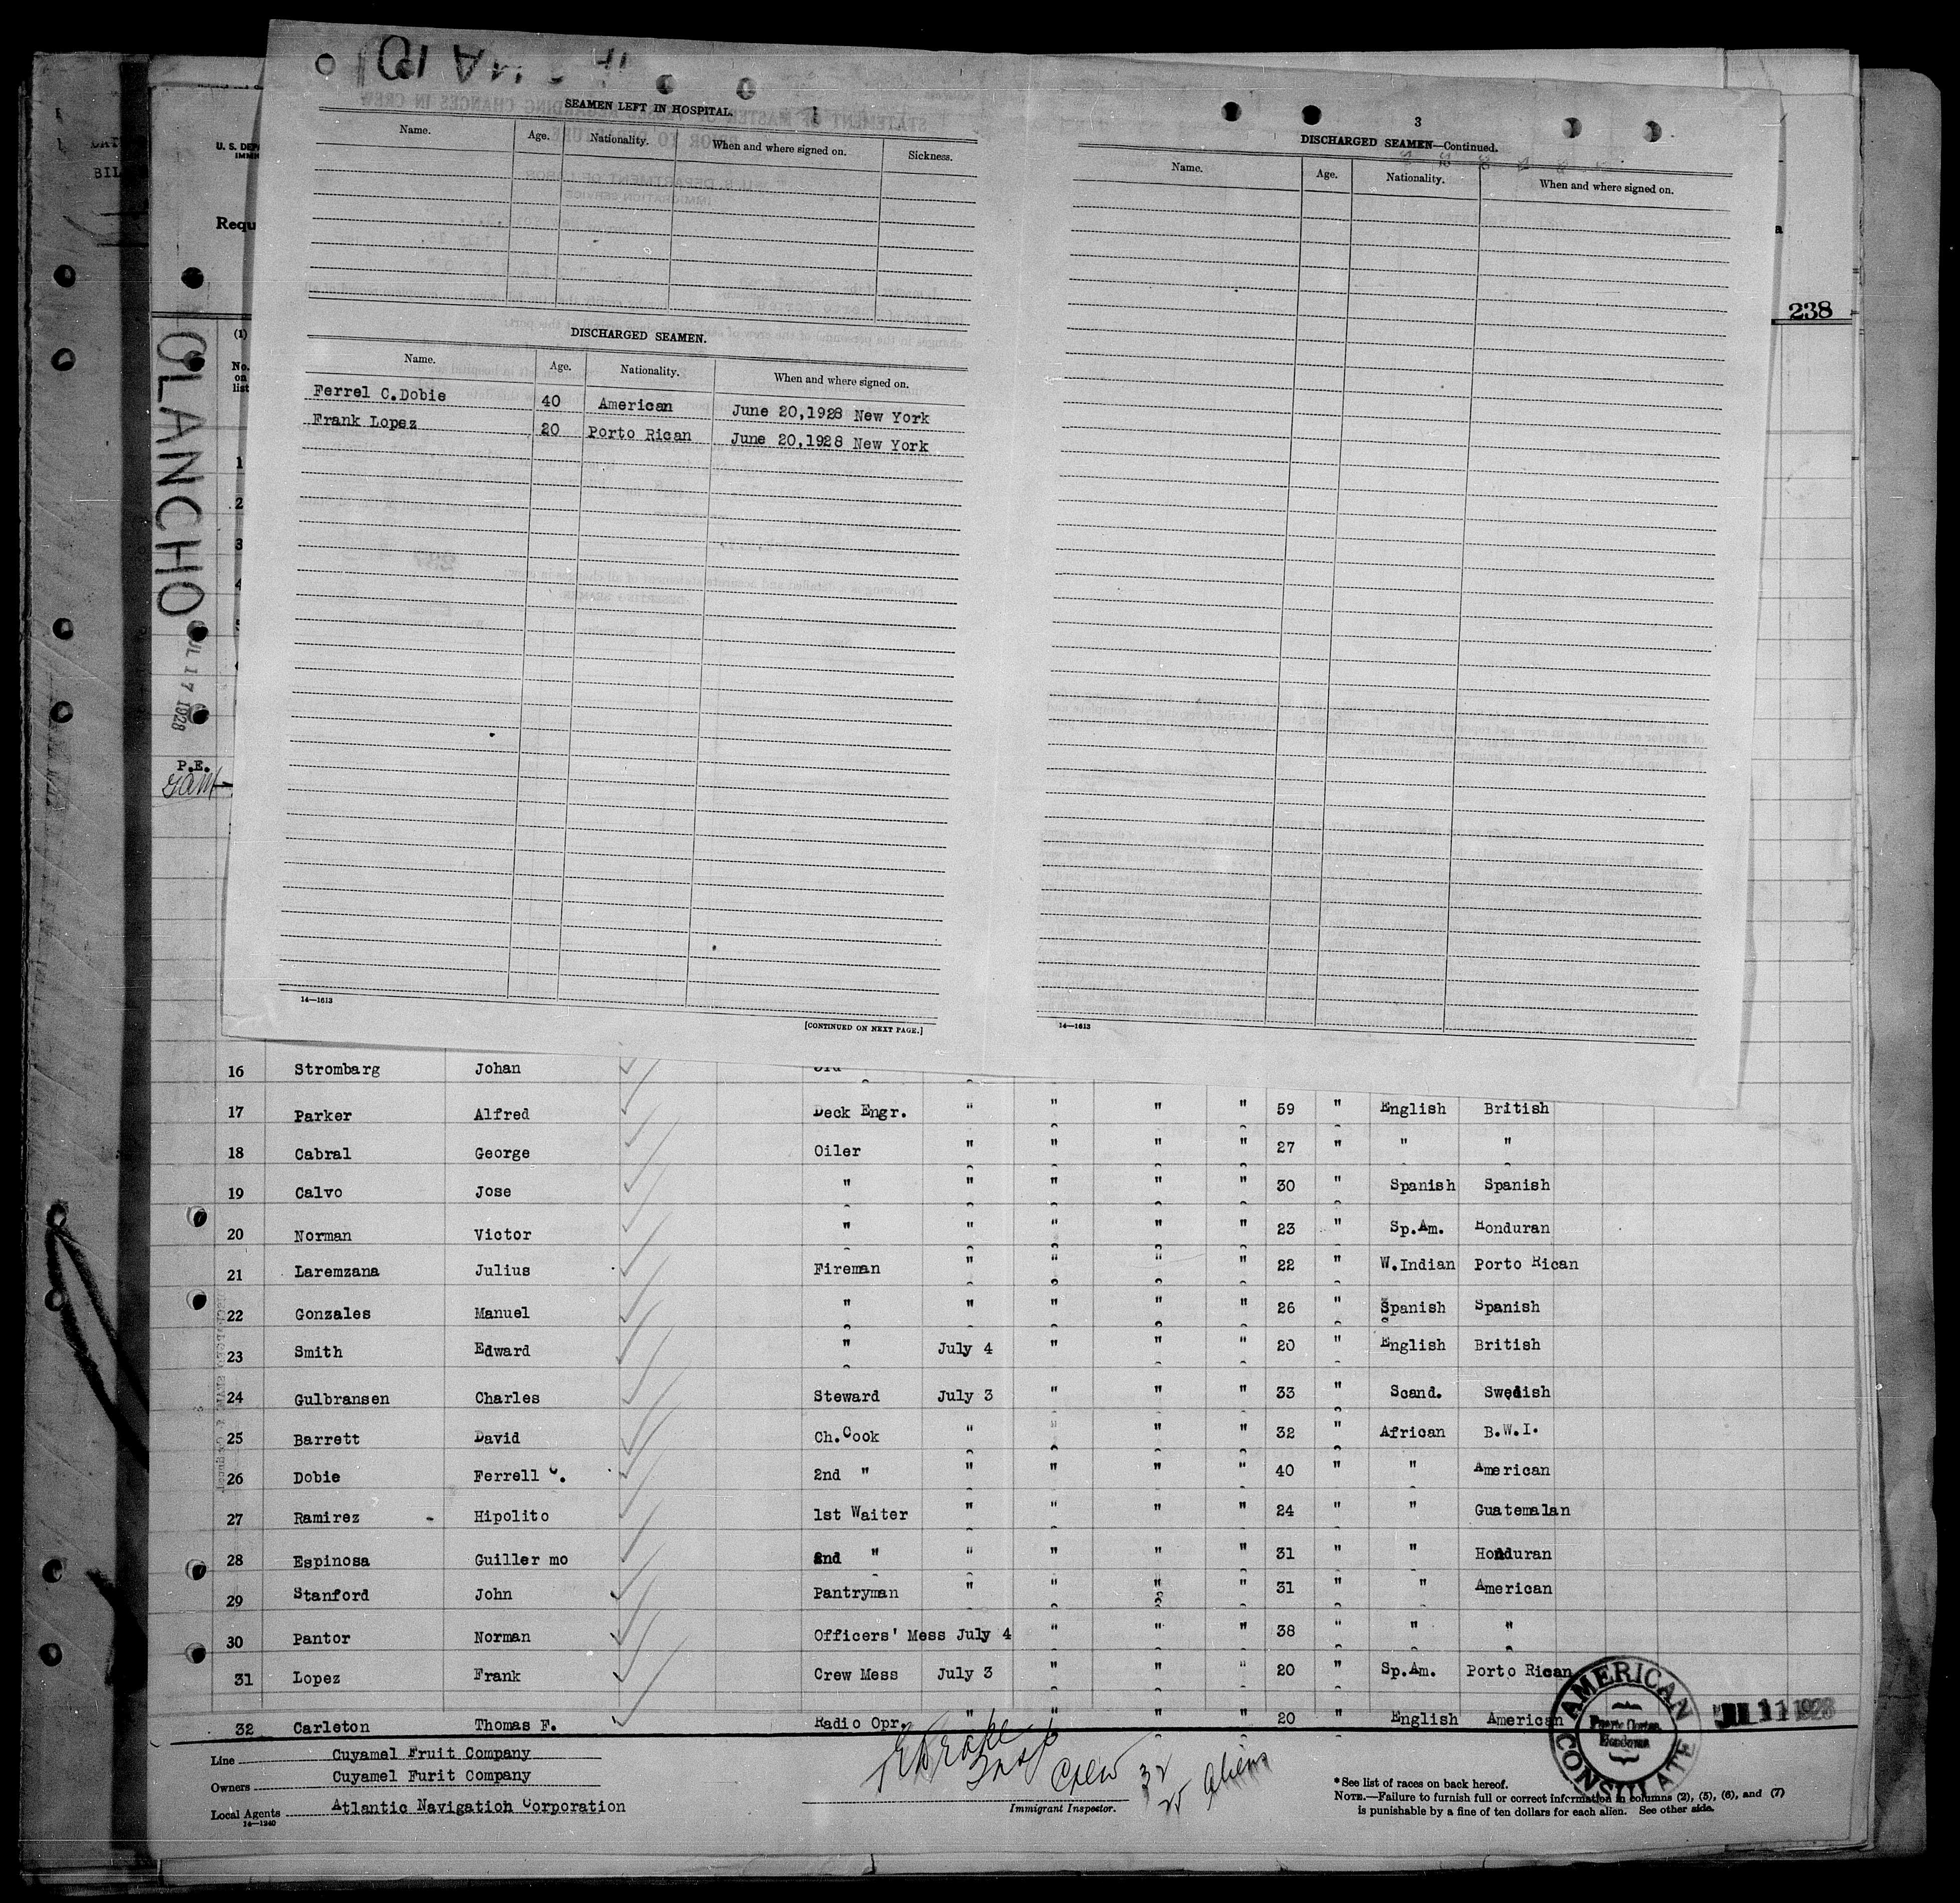 OLANCHO
JUL 17 1928
P.E.
238
SEAMEN LEFT IN HOSPITAL.
Name. Age. Nationality. When and where signed on. Sickness.
DISCHARGED SEAMEN.
Name. Age. Nationality. When and where signed on.
Ferrel C.Dobie 40 American June 20,1928 New York
Frank Lopez 20 Porto Rican June 20,1928 New York
14—1613
[CONTINUED ON NEXT PAGE.]
3
DISCHARGED SEAMEN—Continued.
Name. Age. Nationality. When and where signed on.
14—1613
(1)
No. on list
1
2
3
4
16 Strombarg Johan 3rd
17 Parker Alfred Deck Engr. " " " " 59 " English British
18 Cabral George Oiler " " " " 27 " " "
19 Calvo Jose " " " " " 30 " Spanish Spanish
20 Norman Victor " " " " " 23 " Sp.Am. Honduran
21 Laremzana Julius Fireman " " " " 22 " W.Indian Porto Rican
22 Gonzales Manuel " " " " " 26 " Spanish Spanish
23 Smith Edward " July 4 " " " 20 " English British
24 Gulbransen Charles Steward July 3 " " " 33 " Scand. Swedish
25 Barrett David Ch.Cook " " " " 32 " African B.W.I.
26 Dobie Ferrell C. 2nd " " " " " 40 " " American
27 Ramirez - Hipolito 1st Waiter " " " " 24 " " Guatemalan
28 Espinosa Guiller mo 2nd " " " " " 31 " " Honduran
29 Stanford John Pantryman " " " " 31 " " American
30 Pantor Norman Officers' Mess July 4 " " " 38 " " "
31 Lopez Frank Crew Mess July 3 " " " 20 " Sp.Am. Porto Rican
32 Carleton Thomas F. Radio Opr. " " " " 20 " English American
Line Cuyamel Fruit Company
Owners Cuyamel Furit Company
Local Agents Atlantic Navigation Corporation
14—1240
Crew 32
25 Aliens
Immigrant Inspector.
AMERICAN CONSULATE
Puerto Cortes, Honduras
JUL 11 1928
*See list of races on back hereof.
NOTE.—Failure to furnish full or correct information in columns (2), (5), (6), and (7)
is punishable by a fine of ten dollars for each alien. See other side.